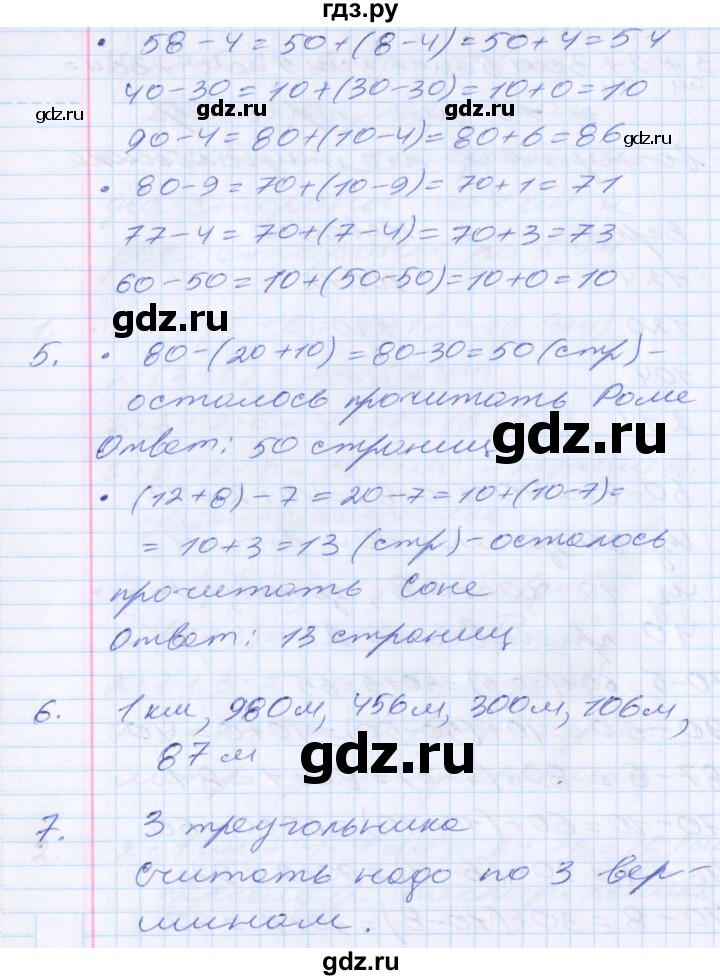 гдз.ру
• 58-4=50+(8-4)=50+4=54
40-30=10+(30-30)=10+0=10
gdz.ru gdz.ru
90-4=80+(10-4)=80+6=86
gdz.ru
• 80-9=70+(10-9)=70+1=71
77-4=70+(7-4)=70+3=73
60-50=10+(50-50)=10+0=10
gdz.ru
5. • 80-(20+10)=80-30=50 (стр)-
осталось прочитать Роме
gdz.ru
Ответ: 50 страниц
• (12+8)-7=20-7=10+(10-7)=
=10+3=13 (стр)-осталось
прочитать Соне
Ответ: 13 страниц
6. 1 км, 980м, 456м, 300м, 106м,
87 м
gdz.ru
7. 3 треугольника
Считать надо по 3 вер-
шинам.
gdz.ru